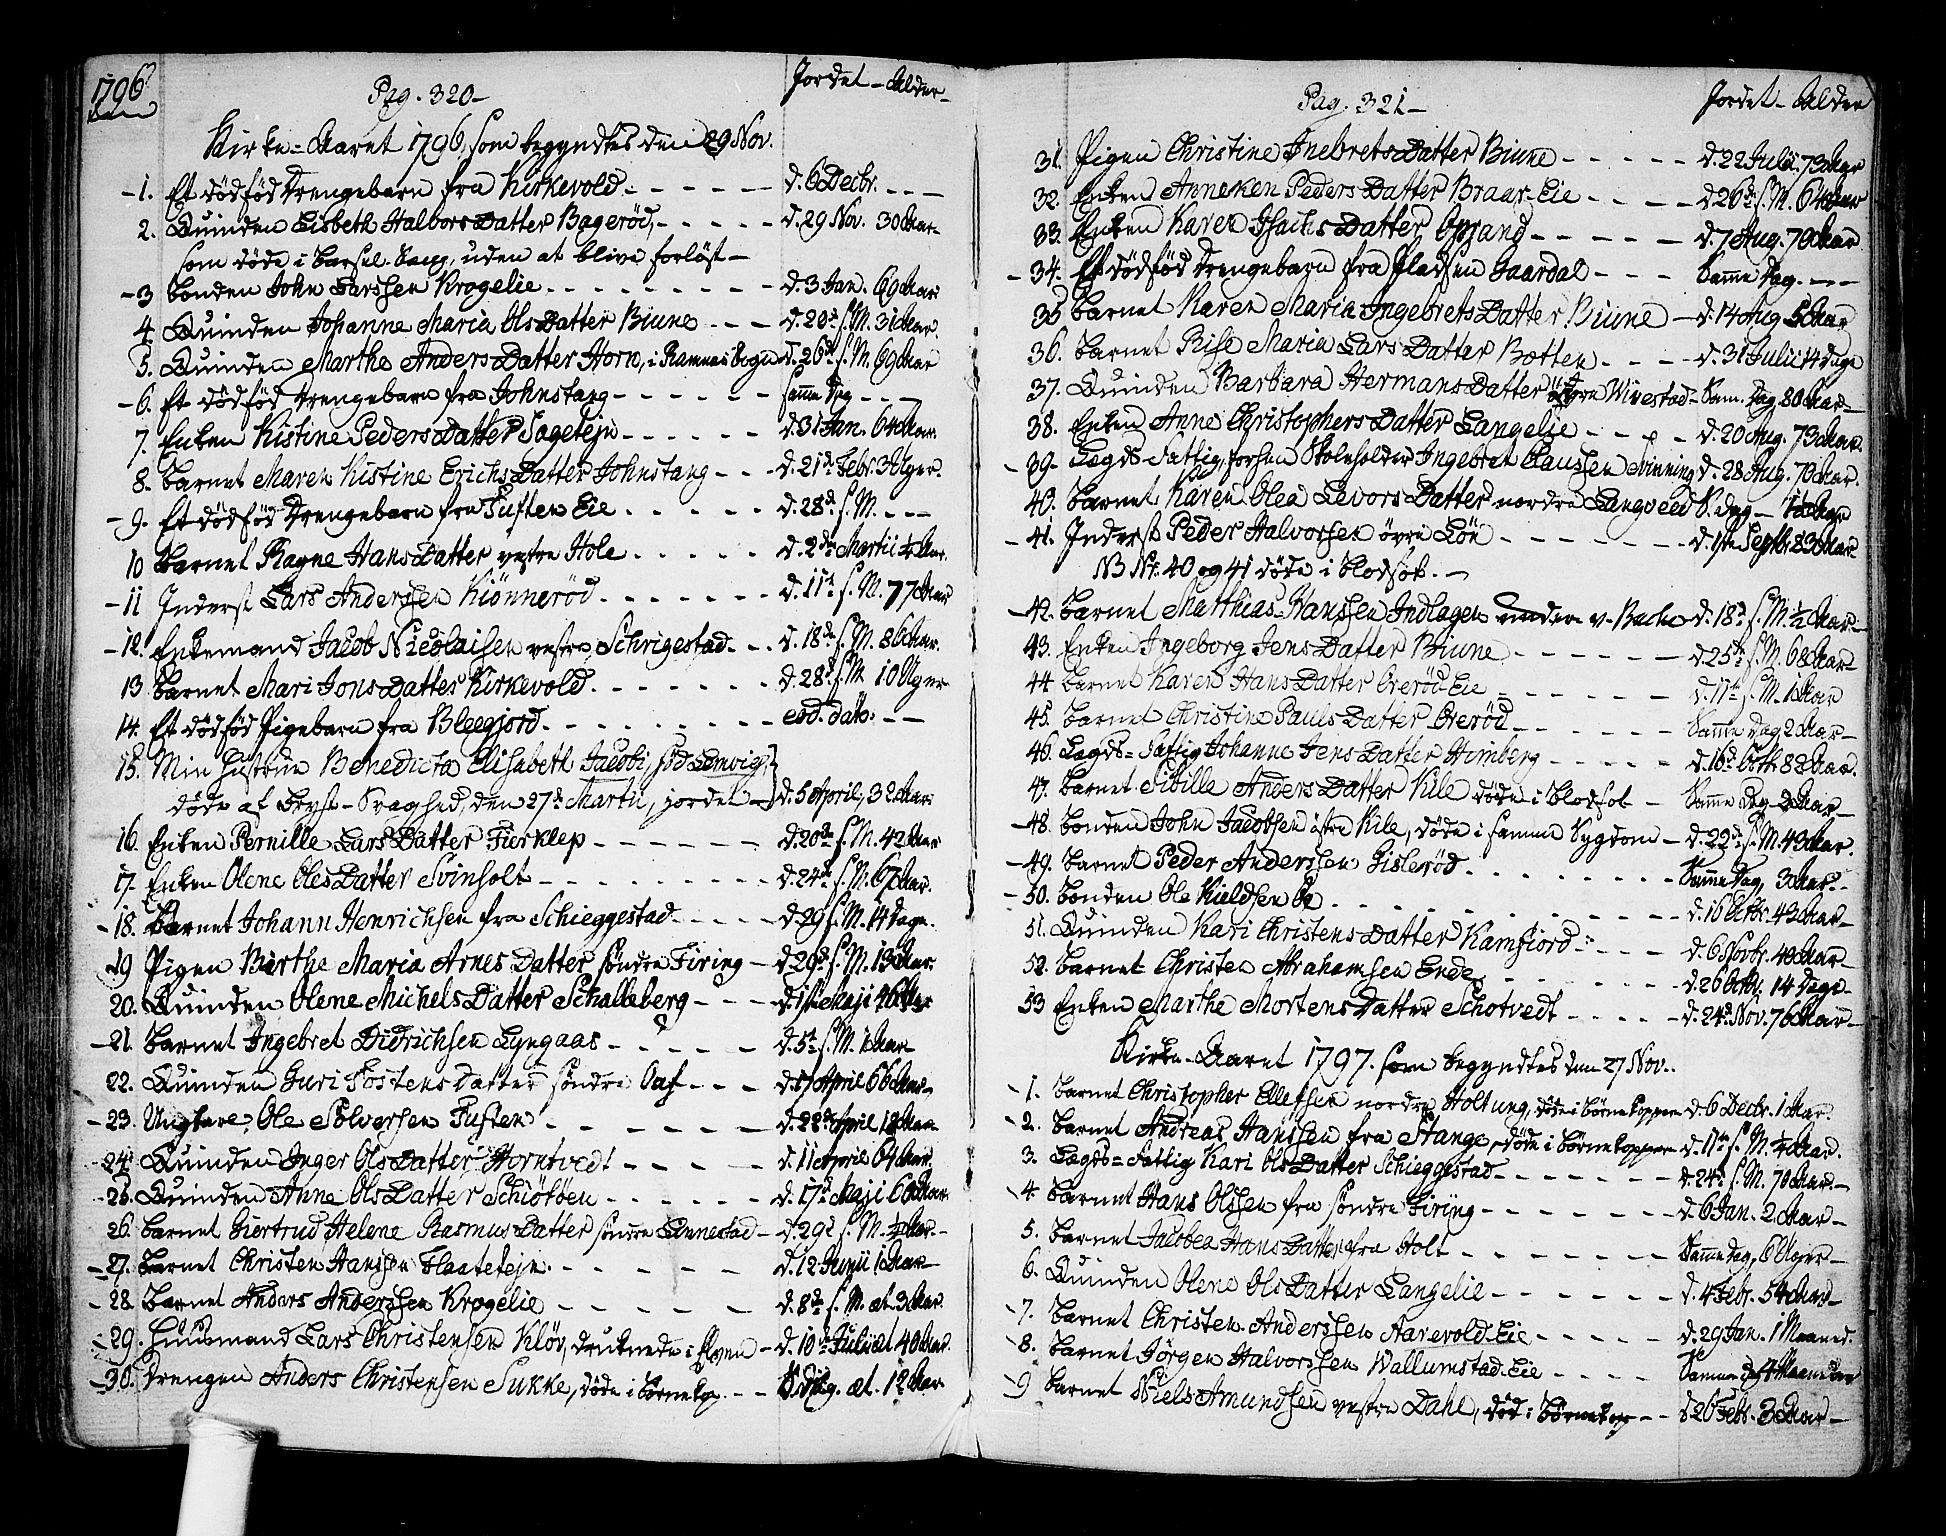 1796
Pag. 320 –
Jordet – Alder –
Kirke=Aaret 1796, som begyndtes den 29 Nov.
1. Et dödföd Drengebarn fra Kirkevold d. 6 Decbr.
2. Quinden Lisbeth HalvorsDatter Bageröd, d. 29 Nov. 30 Aar
som döde i Barsel-Sæng, uden at blive forlöst –
3 Bonden John Larssen Krogelie d. 3 Jan. 69 Aar
4. Quinden Johanne Maria OlsDatter Biune d. 20de s. M. 31 Aar
5. Quinden Marthe AndersDatter Horn, i Ramnes Sogn d. 26d s. M. 69 Aar
6. Et dödföd Drengebarn fra Johnstang samme Dag
7. Enken Kistine PedersDatter Fogetejn d. 31 Jan. 64 Aar.
8. Barnet Maren Kistine ErichsDatter Johnstang d. 21d Febr. 3 Uger.
9. Et dödföd Drengebarn fra Tuften Eie d. 28d s. M.
10 Barnet Ragne HansDatter vestre Hole d. 2de Martii Aar.
11 Inderst Lars Anderssen Kiönneröd d. 11t s. M. 77 Aar
12. Enkemand Jacob Nicolaisen vestre Schrigestad d. 18de s. M. 86 Aar.
13 Barnet Mari JonsDatter Kirkevold d. 28d s. M. 10 Uger
14. Et dödföd Pigebarn fra Bleegjord eod. dato.
15. Min Hustrue Benedicta Elisabeth Jacobi, föd Lemvig,
döde af Bryst-Svaghed, den 27d Martii, jordet d. 5 April, 32 Aar
16. Enken Pernille LarsDatter Fierklep d. 20de s. M. 42 Aar
17. Enken Olene OlesDatter Svinholt d. 24d s. M. 67 Aar.
18. Barnet Johann Henrichsen fra Schieggestad d. 29 s. M. 14 Dage.
19 Pigen Birthe Maria ArnesDatter söndre Firing d. 29d s. M. 13 Aar
20. Quinden Olene MichelsDatter Schalleberg d. 1ste Maji 46 Aar
21. Barnet Ingebret Didrichsen Lyngaas d. 5te s. M. 1 Aar
22. Quinden Guri TostensDatter söndre Oaf d. 17 April 66 Aar
23. Ungkare Ole Sölversen Tuften d. 28d April 18 Aar
24. Quinden Inger OlsDatter Horntvedt d. 11 April 64 Aar
25. Quinden Anne OlsDatter Schiötöen d. 17d Maji 60 Aar
26. Barnet Giertrud Helene RasmusDatter söndre Linnestad d. 29d s. M. Aar
27. Barnet Christen Hanssen Flaatetejn d. 12 Junii 1 Aar
28. Barnet Anders Anderssen Krogelie d. 8de s. M. æt. 3 Aar.
29. Huusmand Lars Christensen Klöv, druknede i Elven d. 10de Julii æt 40 Aar.
30. Drengen Anders Christensen Sukke, döde i Börnekop. S. Dag. æt. 12 Aar
Pag. 321 –
Jordet – Alder
31. Pigen Christine InebretsDatter Biune d. 22 Julii. 73 Aar
32. Enken Anneken PedersDatter Braar-Eie d. 26d s. M. 64 Aar
33. Enken Karen IsachsDatter Opsand d. 7 Aug. 70 Aar
34. Et dödföd Drengebarn fra Pladsen Gaardal Samme Dag.
35 Barnet Karen Maria IngebretsDatter Biune d. 14 Aug. 5 Aar
36. Barnet Rise Maria LarsDatter Botten d. 31 Julii 14 Dage
37. Quinden Barbara HermansDatter Wivestad Sam. Dag, 80 Aar
38. Enken Anne ChristophersDatter Langelie d. 20 Aug. 73 Aar
39. Lægds-Fattig, forhen Skoleholder Ingebret Claussen Svinning d. 28 Aug. 70 Aar.
40. Barnet Karen Olea LevorsDatter nordre Langveed S. dag Aar
41. Inderst Peder Halvorssen övre Löe d. 1ste Septbr 83 Aar
NB Nr. 40 og 41 döde i Blodsot.
42. Barnet Matthias Hanssen Indlagen v. Backe d. 18d s. M. ½ Aar
43. Enken Ingeborg JensDatter Biune d. 25t s. M. 68 Aar
44. Barnet Karen HansDatter Oreröd-Eie d. 17de s. M. 1 Aar
45. Barnet Christine PaulsDatter Oreröd Samme Dag 2 Aar
46. Lægds=Fattig Johanne JensDatter Himberg d. 16d Octbr 82 Aar.
47. Barnet Sibille AndersDatter Kile döde i Blodsot Samme Dag 2 Aar
48. Bonden John Jacobsen östre Kile, döde i samme Sygdom d. 23d s. M. 43 Aar.
49. Barnet Peder Anderssen Gisleröd Samme Dag, 3 Aar.
50. Bonden Ole Kieldsen d. 16 Octbr. 43 Aar
51. Quinden Kari ChristensDatter Kamfiord d. 6 Novbr. 40 Aar
52. Barnet Christen Abrahamsen Ende d. 26 Octbr. 14 Dage
53 Enken Marthe MortensDatter Schotvedt d. 24d Nov. 76 Aar
Kirke-Aaret 1797. som begyndtes den 27 Nov.
1. Barnet Christopher Ellefsen nordre Holtung, döde i Börnekopper d. 6 Decbr. 1 Aar.
2. Barnet Andreas Hanssen fra Stange, döde i Börnekopper d. 11te s. M. Aar.
3. Lægds=Fattig Kari OlsDatter Schieggestad d. 24d s. M. 70 Aar.
4. Barnet Hans Olssen fra söndre Firing d. 6 Jan. 2 Aar
5. Barnet Jacobea HansDatter fra Holt Samme Dag, 6 Uger
6. Quinden Olene OlsDatter Langelie d. 4 Febr. 54 Aar
7. Barnet Christen Anderssen Aarevold-Eie d. 29 Jan. 1 Maaned.
8. Barnet Jörgen Halvorssen Wallumstad-Eie Samme Maaneder
9 Barnet Niels Amundsen vestre Dahl, död i Börnekop d. 26 Febr. 3 Aar